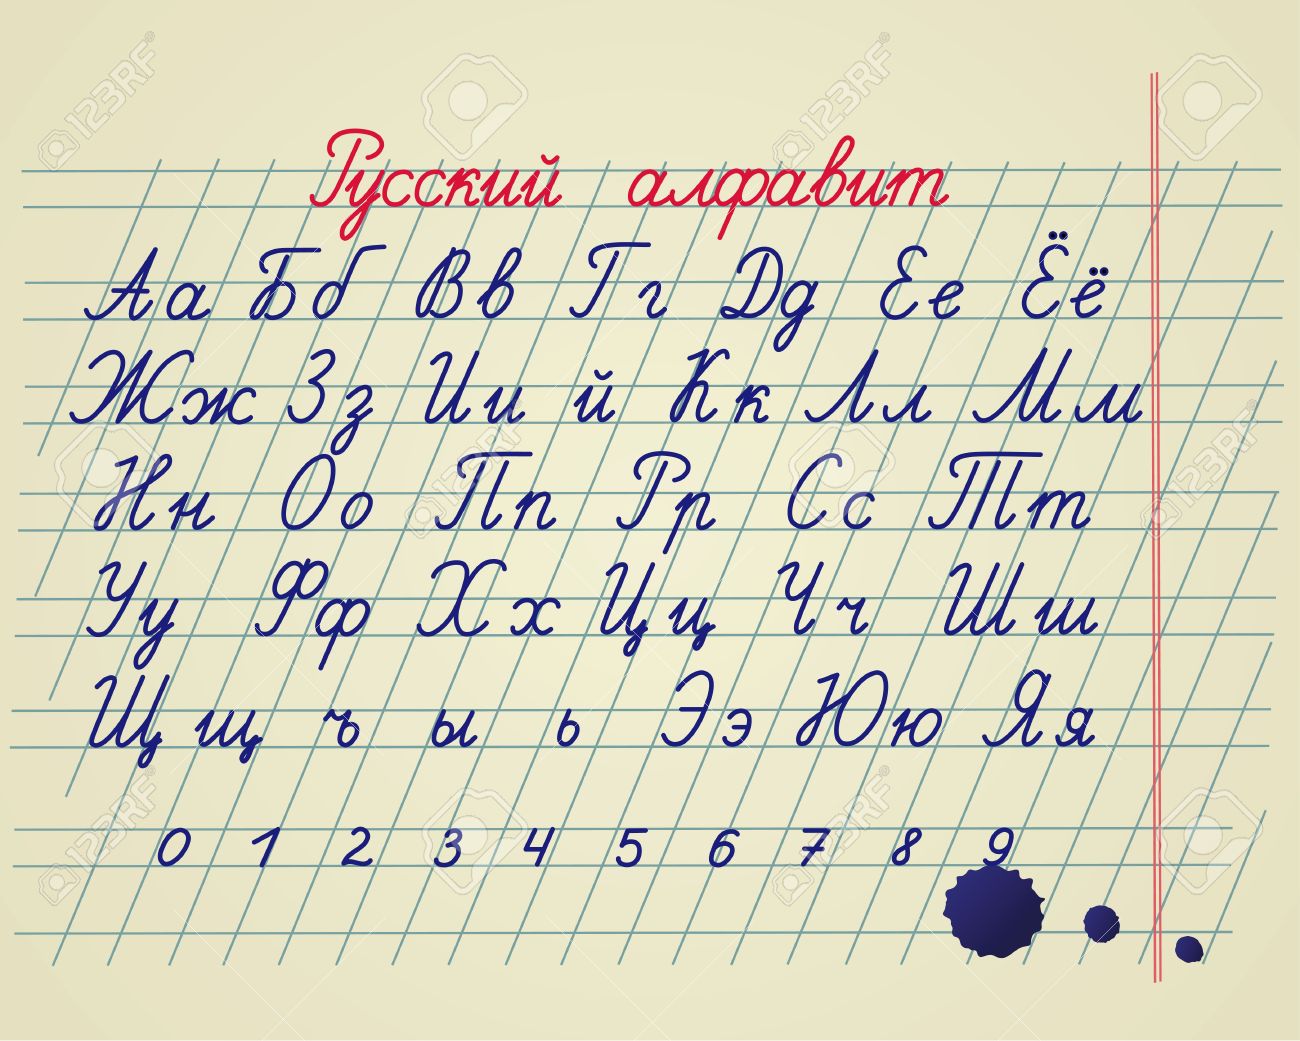 Русский алфавит
Аа Бб Вв Гг Дд Ее Ёё
Жж Зз Ии й Кк Лл Мм
Нн Оо Пп Рр Сс Тт
Уу Фф Хх Цц Чч Шш
Щщ ъ ы ь Ээ Юю Яя
0 1 2 3 4 5 6 7 8 9
123RF
123RF
123RF
123RF
123RF
123RF